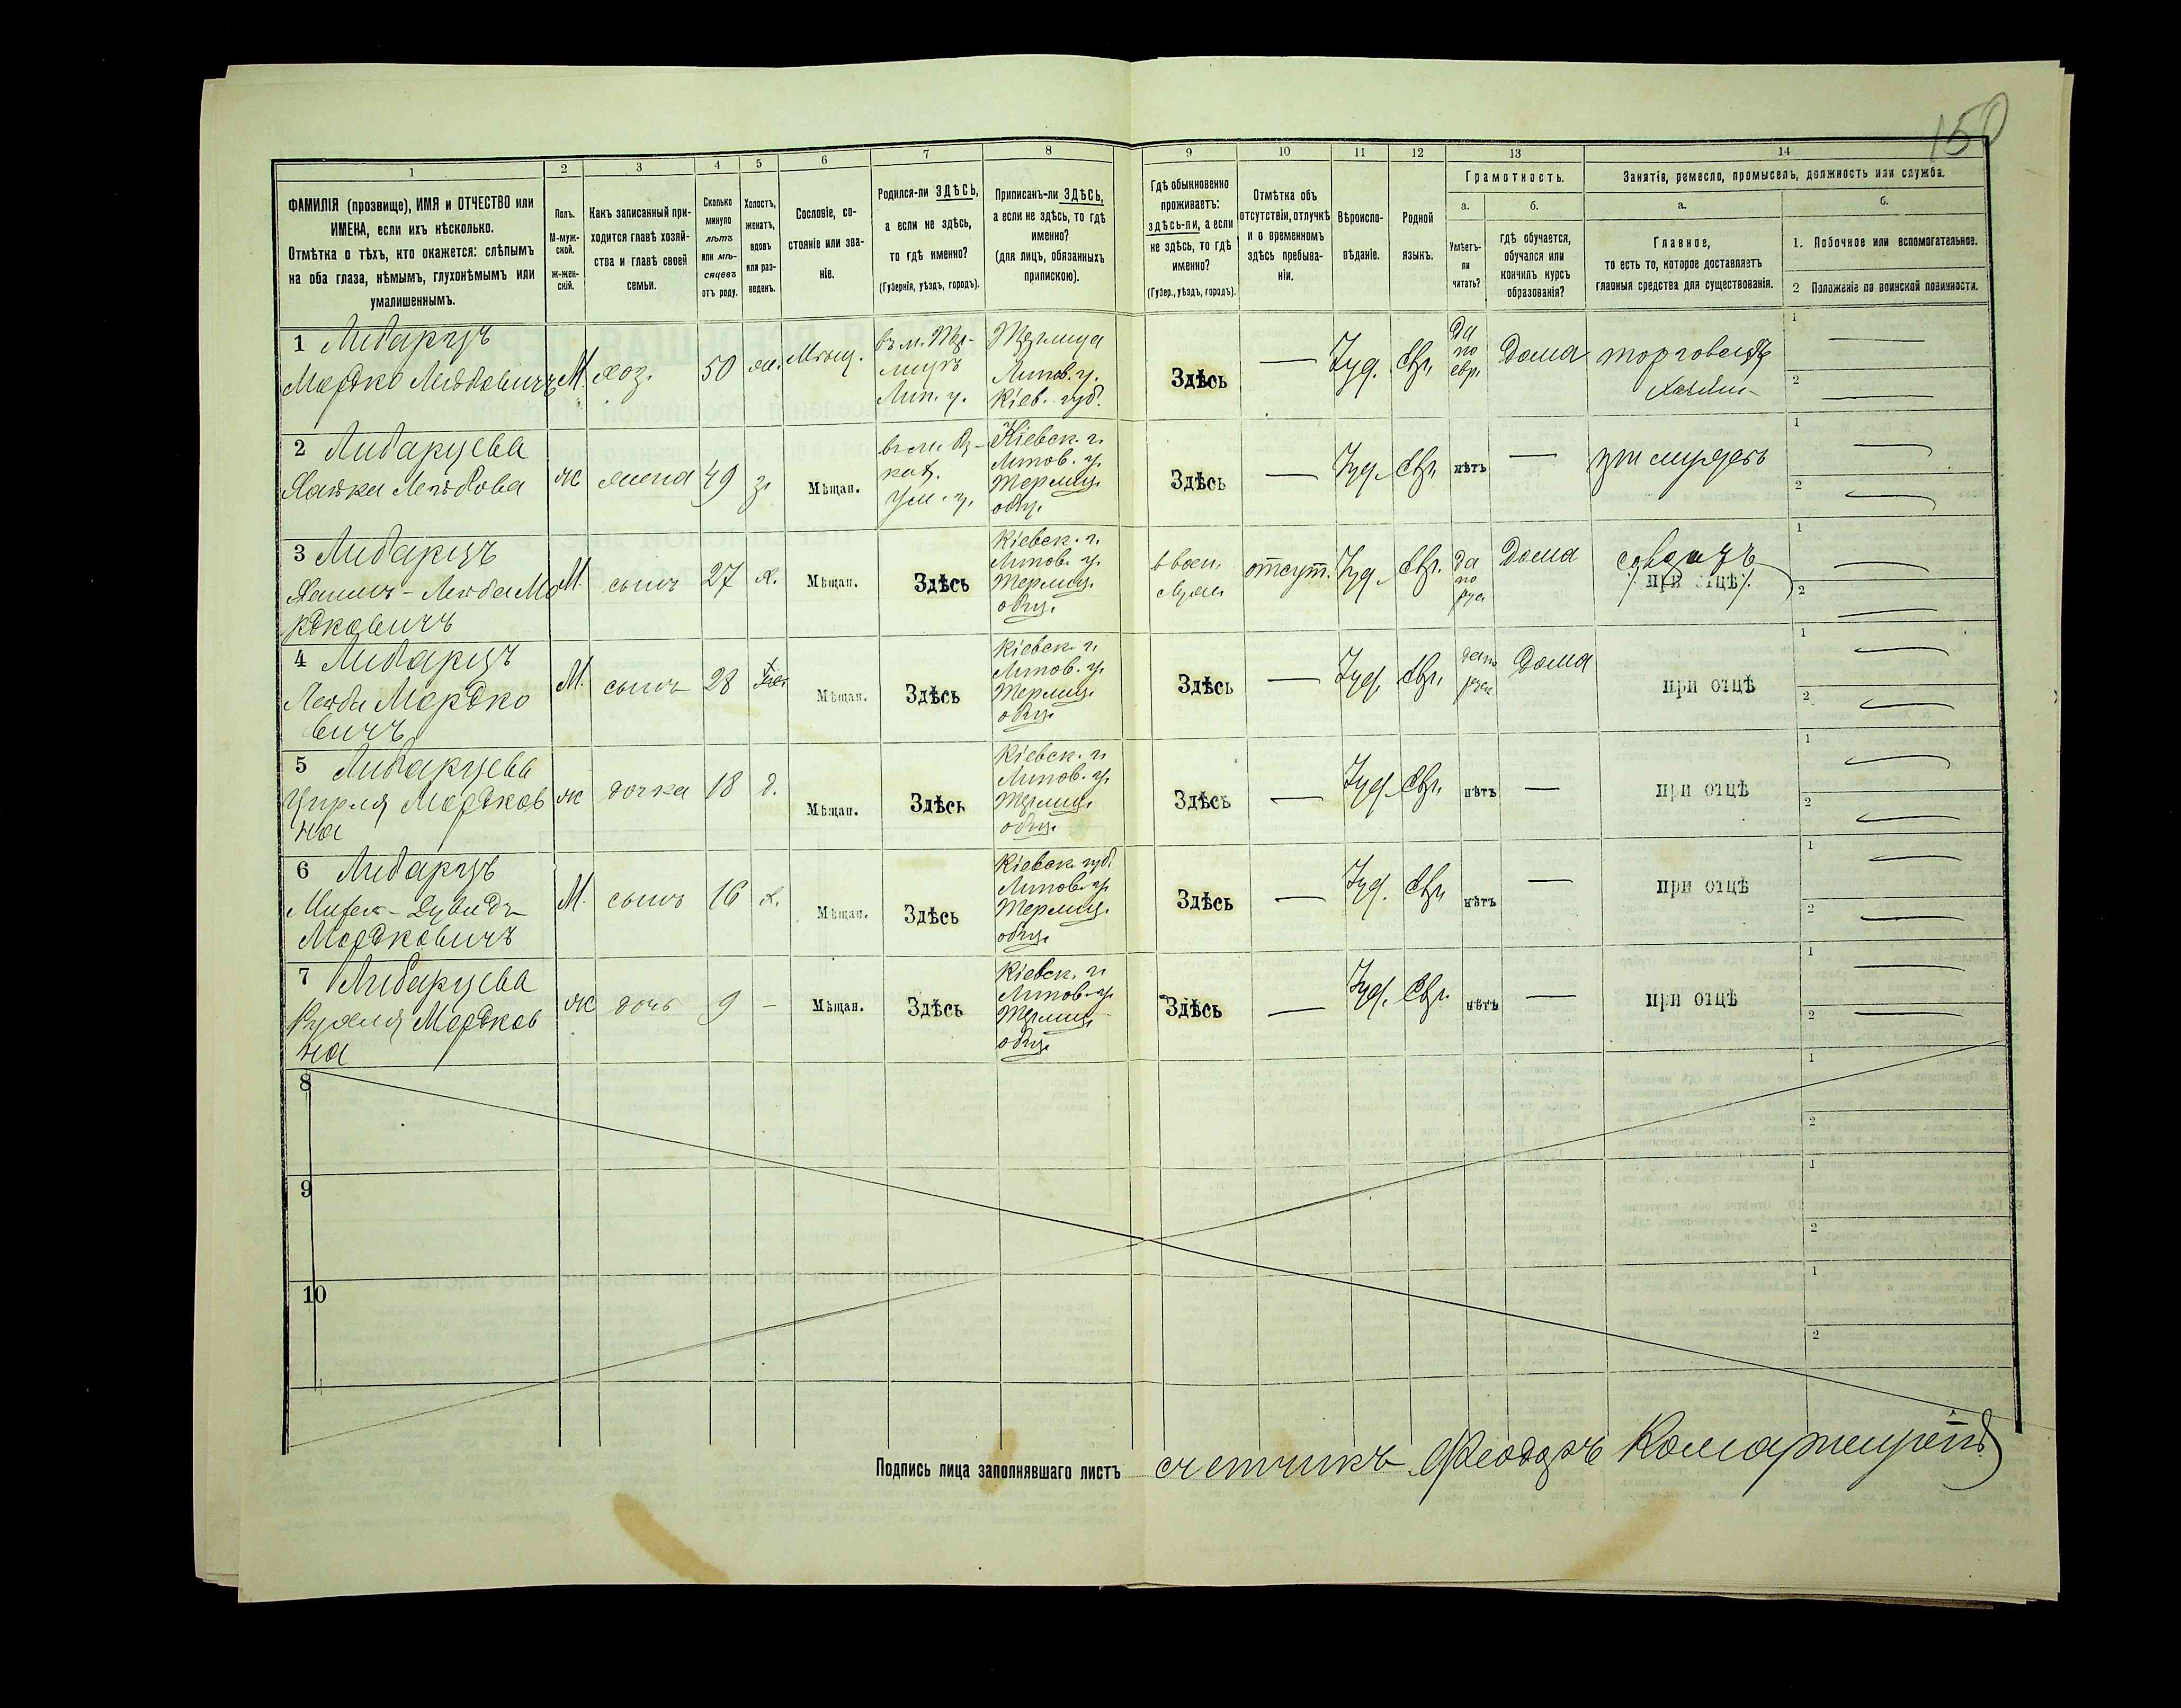 150
1
2
3
4
5
6
7
8
9
10
11
12
13
14
ФАМИЛІЯ (прозвище), ИМЯ и ОТЧЕСТВО или
ИМЕНА, если ихъ нѣсколько.
Отмѣтка о тѣхъ, кто окажется: слѣпымъ
на оба глаза, нѣмымъ, глухонѣмымъ или
умалишеннымъ.
Полъ.
М-муж-
ской.
ж-жен-
скій.
Какъ записанный при-
ходится главѣ хозяй-
ства и главѣ своей
семьи.
Сколько
минуло
лѣтъ
или мѣ-
сяцевъ
отъ роду.
Холостъ,
женатъ,
вдовъ
или раз-
веденъ.
Сословіе, со-
стояніе или зва-
ніе.
Родился-ли ЗДѢСЬ,
а если не здѣсь,
то гдѣ именно?
(Губернія, уѣздъ, городъ).
Приписанъ-ли ЗДѢСЬ,
а если не здѣсь, то гдѣ
именно?
(для лицъ, обязанныхъ
припискою).
Гдѣ обыкновенно
проживаетъ:
здѣсь-ли, а если
не здѣсь, то гдѣ
именно?
(Губер., уѣздъ, городъ).
Отмѣтка объ
отсутствіи, отлучкѣ
и о временномъ
здѣсь пребыва-
ніи.
Вѣроиспо-
вѣданіе.
Родной
языкъ.
Грамотность.
а.
Умѣетъ-
ли
читать?
б.
гдѣ обучается,
обучался или
кончилъ курсъ
образованія?
Занятіе, ремесло, промыселъ, должность или служба.
а.
Главное,
то есть то, которое доставляетъ
главныя средства для существованія.
б.
1. Побочное или вспомогательное.
2 Положеніе по воинской повинности.
1 Либарцъ
Мордко Лейбовичъ
М
хоз.
50
ж.
Мѣщ.
Лип. у.
Липов. у.
Кіев. губ.
Здѣсь
—
Іуд.
Евр.
Да
по
евр.
Дома
торговецъ
1 —
2 —
2 Либарцева
Хайка Лейбова
ж
жена
49
з.
Мѣщан.
Ум. у.
Кіевск. г.
Липов. у.
Терлиц.
общ.
Здѣсь
—
Іуд.
Евр.
нѣтъ
—
при мужѣ
1 —
2 —
3 Либарцъ
Мо
рдковичъ
М.
сынъ
27
х.
Мѣщан.
Здѣсь
Кіевск. г.
Липов. у.
Терлиц.
общ.
отсут.
Іуд.
Евр.
да
по
рус
Дома
при отцѣ
1 —
2 —
4 Либарцъ
Лейба Мордко
вичъ
М.
сынъ
28
Мѣщан.
Здѣсь
Кіевск. г.
Липов. у.
Терлиц.
общ.
Здѣсь
—
Іуд.
Евр.
да по
рус.
Дома
при отцѣ
1 —
2 —
5 Либарцева
Цирля Мордков
на
ж
дочка
18
д.
Мѣщан.
Здѣсь
Кіевск. г.
Липов. у.
Терлиц.
общ.
Здѣсь
—
Іуд.
Евр.
нѣтъ
—
при отцѣ
1 —
2 —
6 Либарцъ
Мордковичъ
М.
сынъ
16
х.
Мѣщан.
Здѣсь
Кіевск. губ.
Липов. у.
Терлиц.
общ.
Здѣсь
—
Іуд.
Евр.
нѣтъ
—
при отцѣ
1 —
2 —
7 Либарцева
Рухля Мордков
на
ж
дочь
9
—
Мѣщан.
Здѣсь
Кіевск. г.
Липов. у.
Терлиц.
общ.
Здѣсь
—
Іуд.
Евр.
нѣтъ
—
при отцѣ
1 —
2 —
8
1
2
9
1
2
10
1
2
Подпись лица заполнявшаго листъ счетчикъ Феодоръ